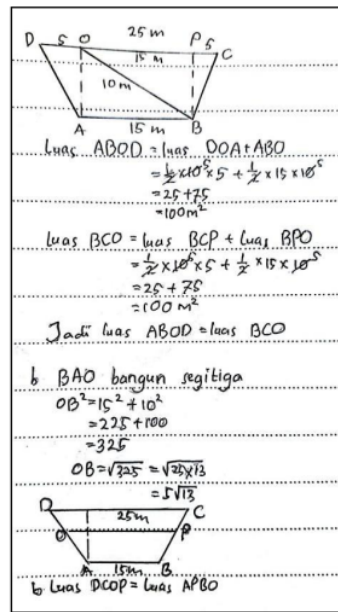 25 m
D 5 O 15 m P 5 C
10 m
A 15 m B
Luas ABOD = luas DOA + ABO
= 1/2 × 10 5 × 5 + 1/2 × 15 × 10 5
= 25 + 75
= 100 m²
Luas BCO = luas BCP + luas BPO
= 1/2 × 10 5 × 5 + 1/2 × 15 × 10 5
= 25 + 75
= 100 m²
Jadi luas ABOD = luas BCO
b BAO bangun segitiga
OB² = 15² + 10²
= 225 + 100
= 325
OB = √325 = √25×13
= 5√13
D 25 m C
O P
A 15 m B
b Luas DCOP = luas APBO